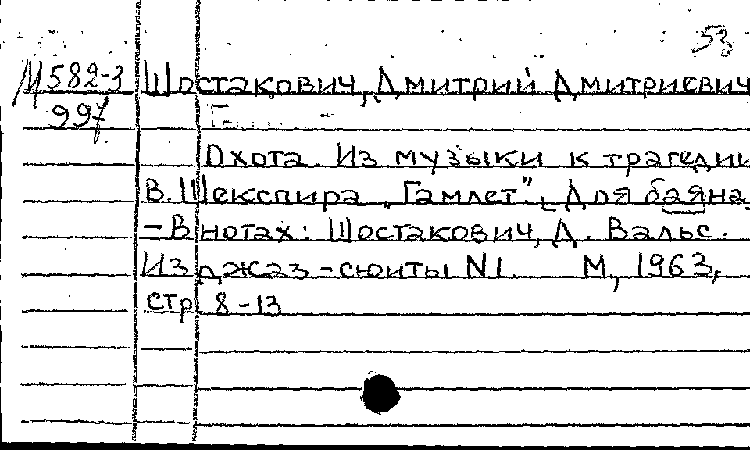 53
М 582-3 Шостакович, Дмитрий Дмитриевич
997
Охота. Из музыки к трагедии
В. Шекспира „Гамлет". Для баяна.
– В нотах: Шостакович, Д. Вальс.
Из джаз-сюиты N1. М, 1963,
стр 8-13